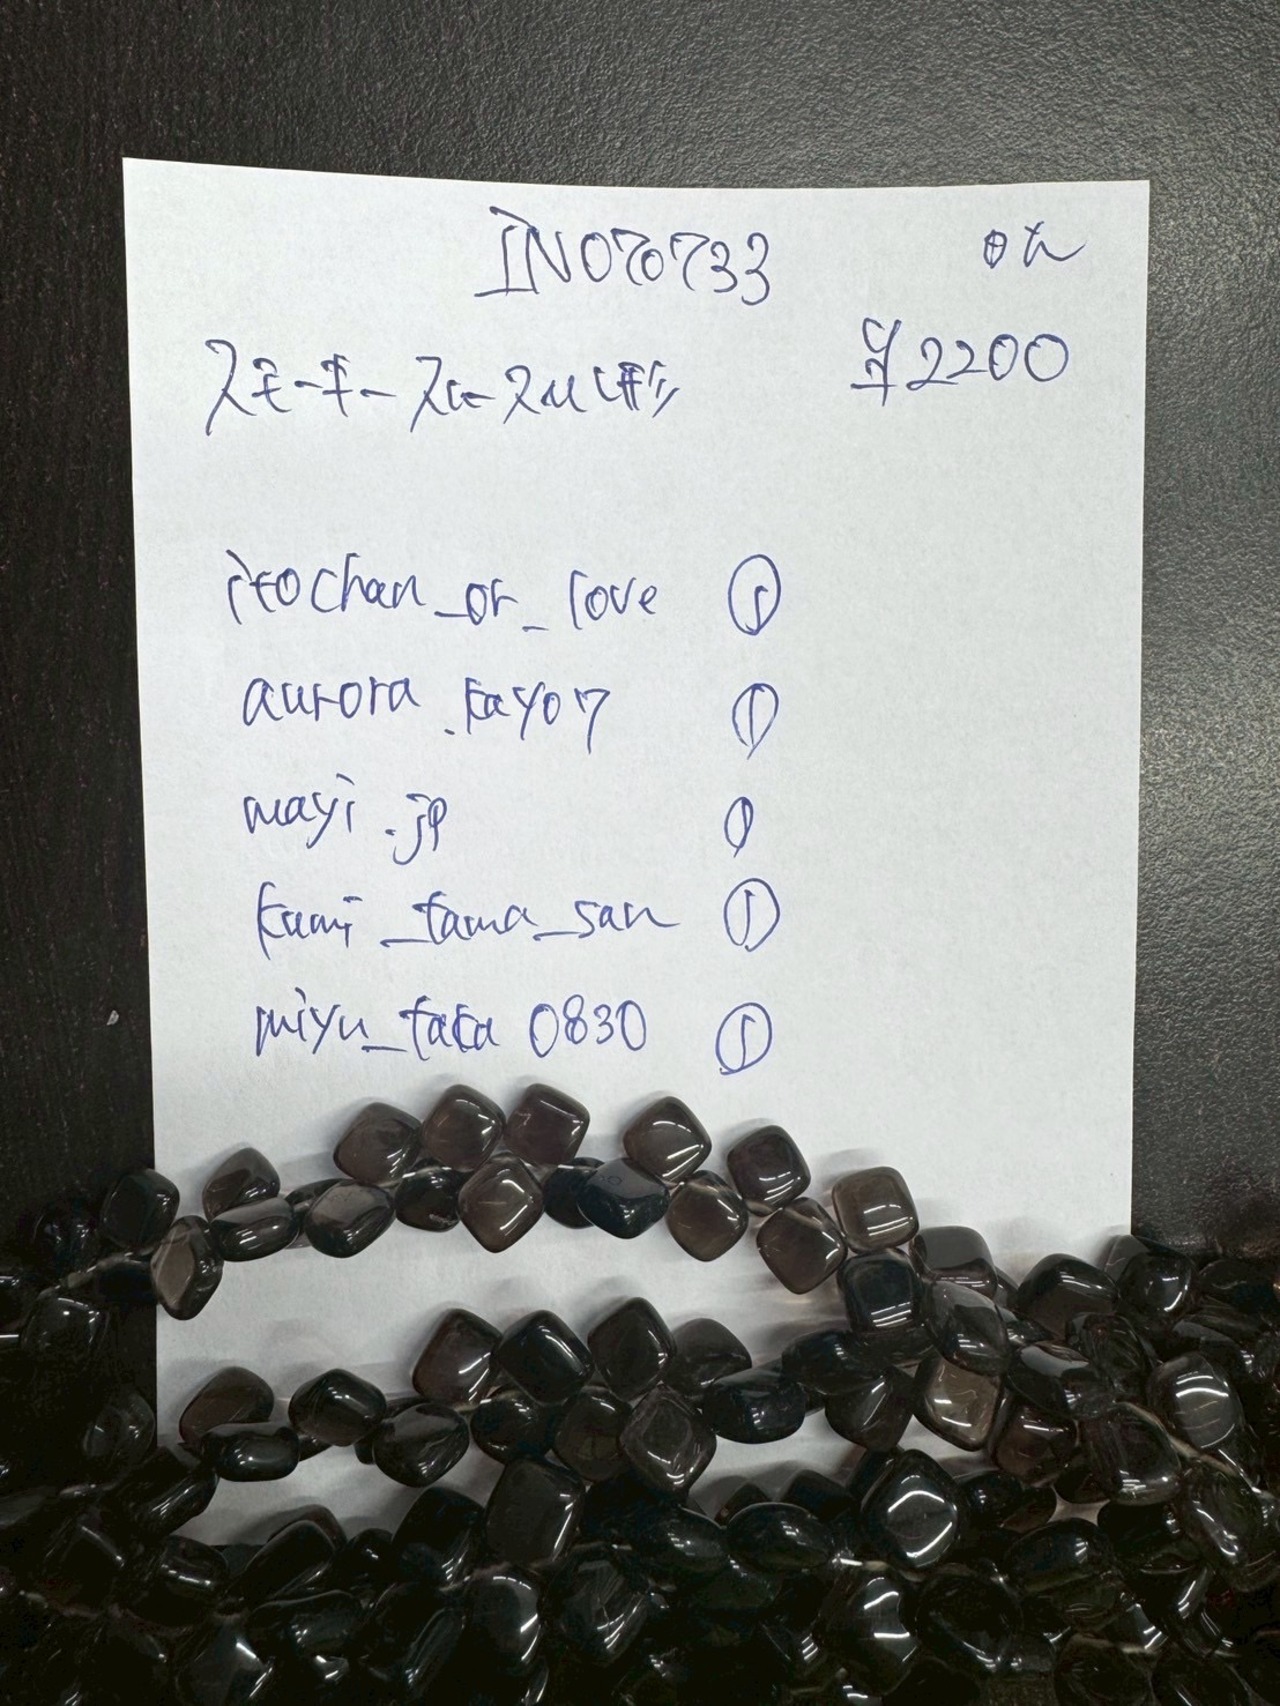 IN070733
¥2200
スモーキースクースひし形
itochan_or_love ①
aurora.kayo7 ①
mayi.jp ①
kumi_tama_san ①
miyu_taka0830 ①